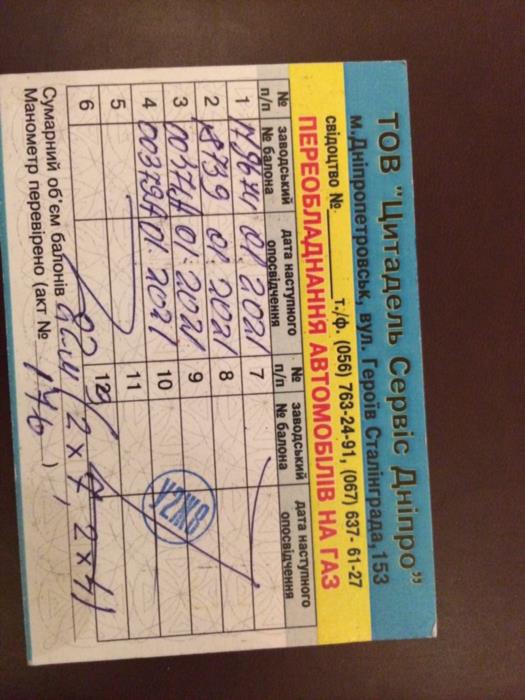 ТОВ "Цитадель Сервіс Дніпро"
м.Дніпропетровськ, вул. Героїв Сталінграда,153
свідоцтво № ______ т./ф. (056) 763-24-91, (067) 637- 61-27
ПЕРЕОБЛАДНАННЯ АВТОМОБІЛІВ НА ГАЗ
№ п/п заводський № балона дата наступного опосвідчення № п/п заводський № балона дата наступного опосвідчення
1 01 2021 7
2 18739 01 2021 8
3 01. 2021 9
4 01. 2021 10
5 11
6 12
У2Ж8
Сумарний об'єм балонів
Манометр перевірено (акт № 176 )